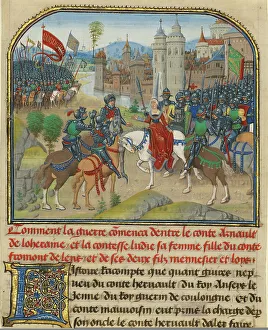 Comment la guerre cõmenca dentre le conte Arnault
de loheraine et la contesse ludie sa femme fille du conte
fromont de lens et de ses deux filz mennesier et loys
Listoire racompte que quant guirec nep
ueu du conte hernault du Roy Anseys le
Jenne du Roy guerin de coulongne et du
conte mauuoisin eut prinse la charge de p
son oncle le conte hernault